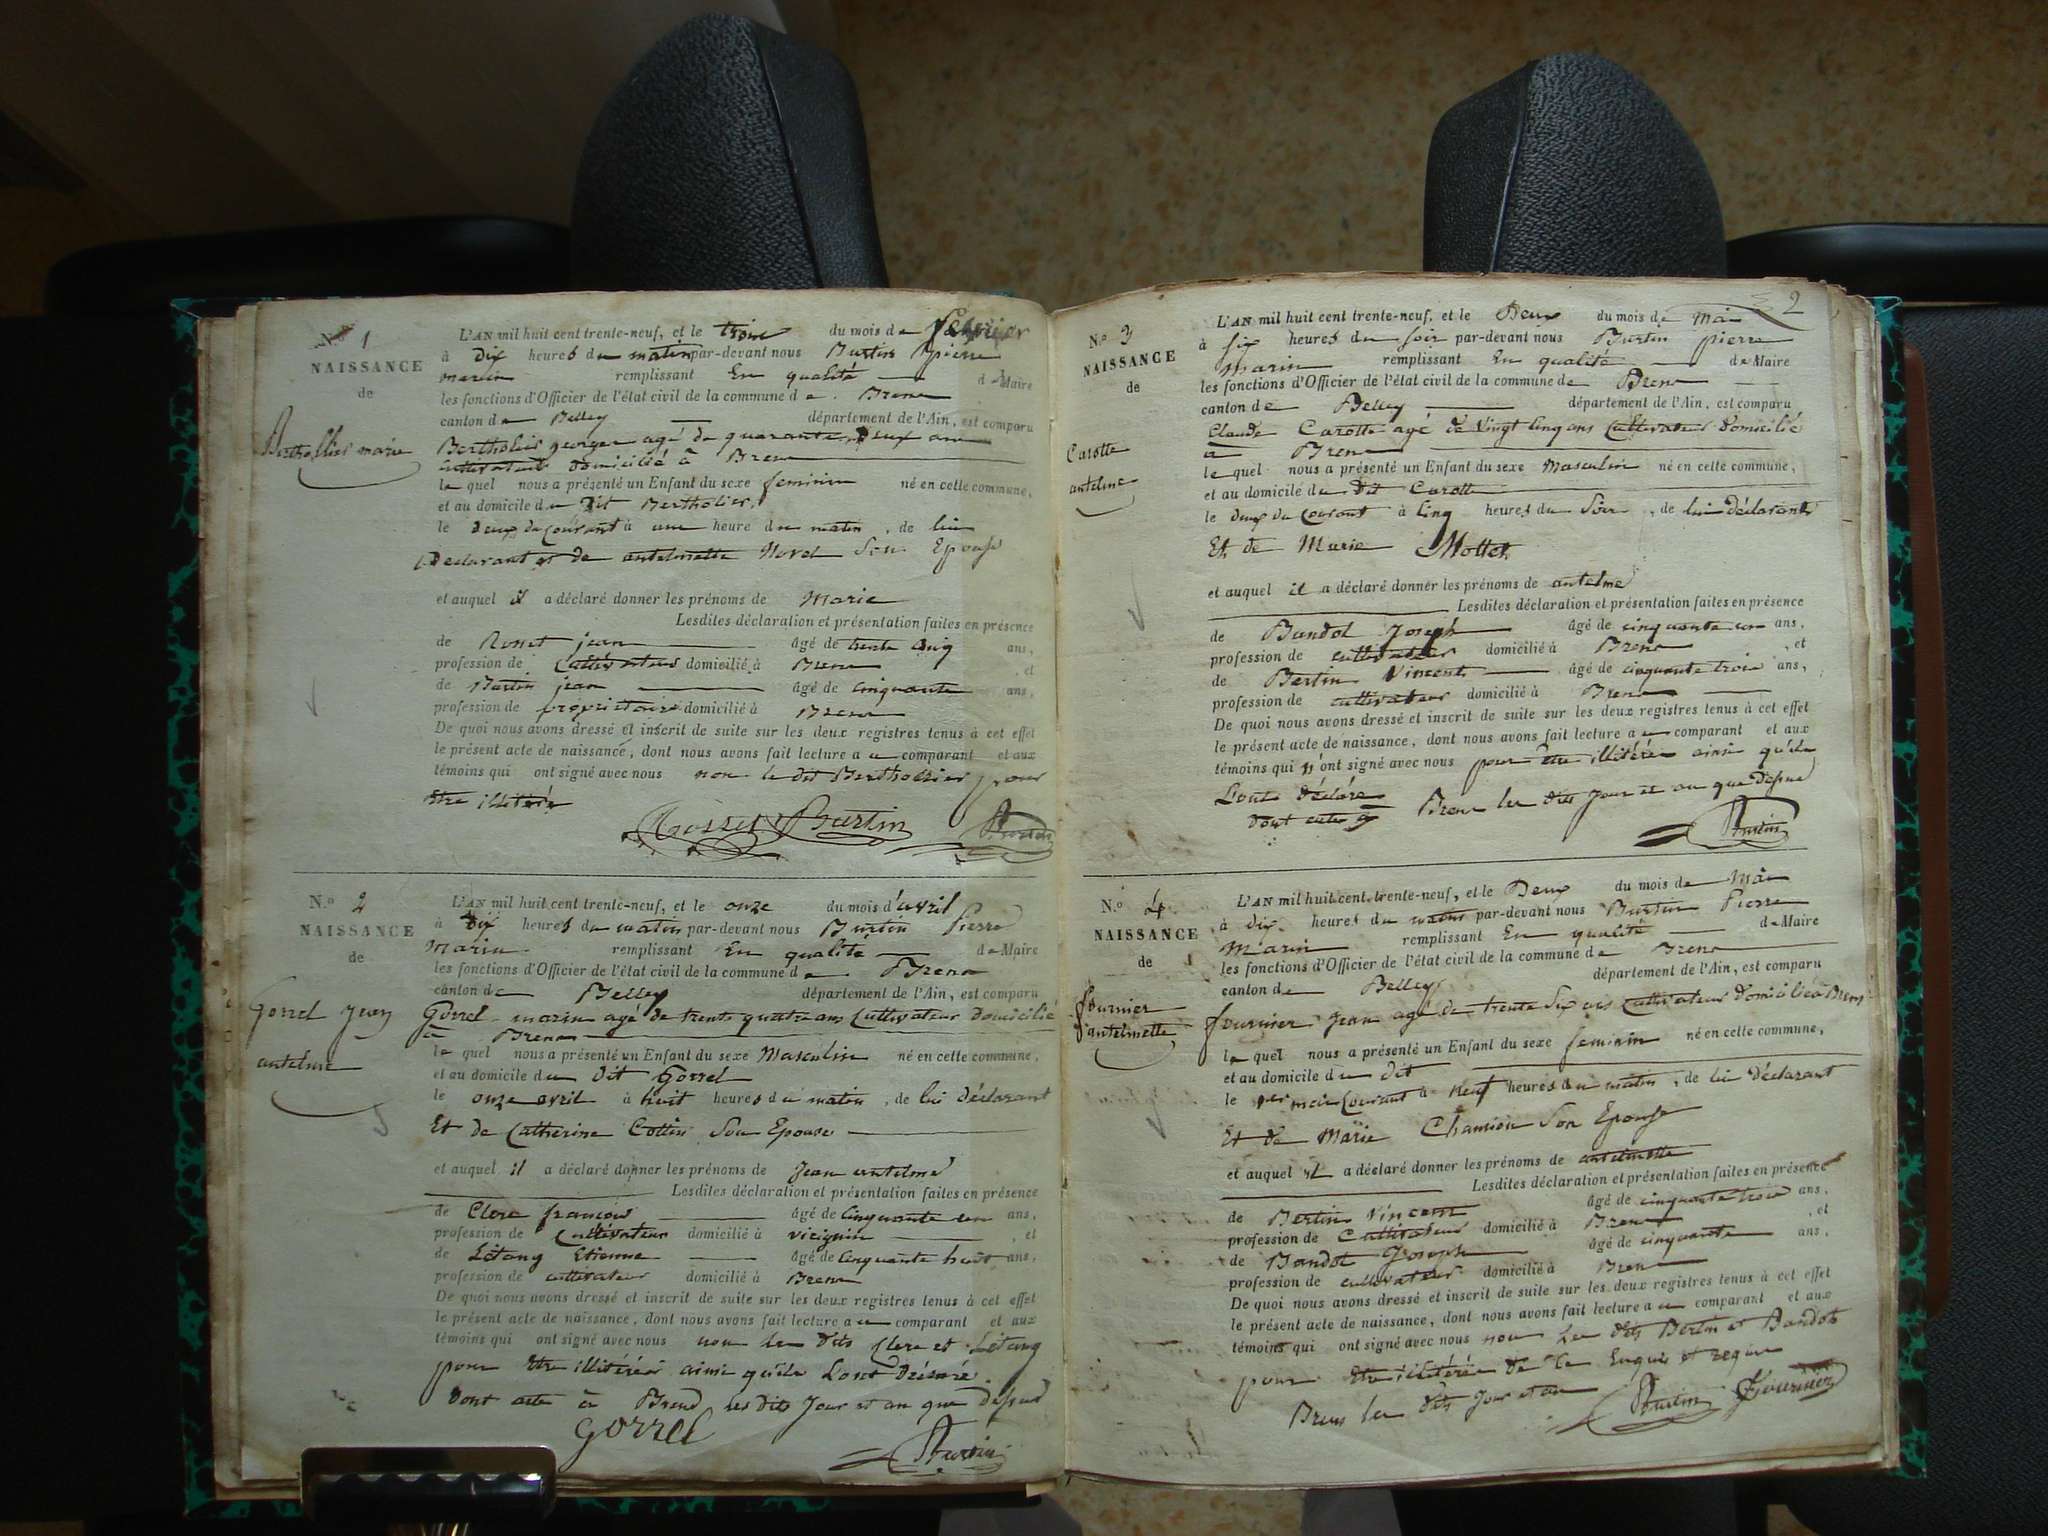 N.º 1
NAISSANCE
de
Bertholier marie
L'AN mil huit cent trente-neuf, et le trois du mois de février
à Dix heures du matin par-devant nous Burtin pierre
marin remplissant En qualité de Maire
les fonctions d'Officier de l'état civil de la commune de Brens
canton de Belley département de l'Ain, est comparu
Bertholier georges agé de quarante Deux ans
cultivateur domicilié à Brens
lequel nous a présenté un Enfant du sexe feminin né en cette commune,
et au domicile du Dit Bertholier,
le deux du courant à une heure du matin, de lui
Declarant et de antelmette Morel Son Epouse
et auquel il a déclaré donner les prénoms de Marie
Lesdites déclaration et présentation faites en présence
de Rosset jean âgé de trente cinq ans,
profession de Cultivateur domicilié à Brens, et
de Burtin jean âgé de cinquante ans,
profession de propriétaire domicilié à Brens
De quoi nous avons dressé et inscrit de suite sur les deux registres tenus à cet effet
le présent acte de naissance, dont nous avons fait lecture au comparant et aux
témoins qui ont signé avec nous non le dit Bertholier pour
être illitéré
Rosset Burtin Burtin
N.º 2
NAISSANCE
de
Gorrel Jean
antelme
L'AN mil huit cent trente-neuf, et le onze du mois d'avril
à Dix heures du matin par-devant nous Burtin Pierre
Marin remplissant En qualité de Maire
les fonctions d'Officier de l'état civil de la commune de Brens
canton de Belley département de l'Ain, est comparu
Gorrel marin agé de trente quatre ans Cultivateur Domicilié
à Brens
lequel nous a présenté un Enfant du sexe Masculin né en cette commune,
et au domicile du Dit Gorrel
le onze avril à huit heures du matin, de lui Déclarant
Et de Catherine Cottin Son Epouse
et auquel il a déclaré donner les prénoms de Jean antelme
Lesdites déclaration et présentation faites en présence
de Clerc françois âgé de Cinquante un ans,
profession de Cultivateur domicilié à virignin, et
de Létang Etienne âgé de Cinquante huit ans,
profession de cultivateur domicilié à Brens
De quoi nous avons dressé et inscrit de suite sur les deux registres tenus à cet effet
le présent acte de naissance, dont nous avons fait lecture au comparant et aux
témoins qui ont signé avec nous non les Dits Clerc et Létang
pour Etre illitérés ainsi qu'ils L'ont Déclaré
Dont acte à Brens les dits Jour et an que Dessus
Gorrel
Burtin
2
N.º 3
NAISSANCE
de
Carotte
antelme
L'AN mil huit cent trente-neuf, et le Deux du mois de Mai
à six heures du soir par-devant nous Burtin pierre
Marin remplissant En qualité de Maire
les fonctions d'Officier de l'état civil de la commune de Brens
canton de Belley département de l'Ain, est comparu
Claude Carotte agé de Vingt Cinq ans Cultivateur Domicilié
à Brens
lequel nous a présenté un Enfant du sexe Masculin né en cette commune,
et au domicile du Dit Carotte
le deux du Courant à Cinq heures du Soir, de lui Déclarant
Et de Marie Mollet
et auquel il a déclaré donner les prénoms de antelme
Lesdites déclaration et présentation faites en présence
de Bandot Joseph âgé de cinquante un ans,
profession de cultivateur domicilié à Brens, et
de Bertin Vincent âgé de cinquante trois ans,
profession de cultivateur domicilié à Brens
De quoi nous avons dressé et inscrit de suite sur les deux registres tenus à cet effet
le présent acte de naissance, dont nous avons fait lecture au comparant et aux
témoins qui n'ont signé avec nous pour être illitérés ainsi qu'ils
L'ont déclaré
Dont acte à Brens les dits Jour et an que Dessus
Burtin
N.º 4
NAISSANCE
de
fournier
antelmette
L'AN mil huit cent trente-neuf, et le Deux du mois de Mai
à dix heures du matin par-devant nous Burtin Pierre
Marin remplissant En qualité de Maire
les fonctions d'Officier de l'état civil de la commune de Brens
canton de Belley département de l'Ain, est comparu
fournier Jean agé de trente Six ans Cultivateur Domicilié à Brens
lequel nous a présenté un Enfant du sexe feminin né en cette commune,
et au domicile du dit
le 1er mai Courant à neuf heures du matin, de lui Déclarant
Et de Marie Chamion Son Epouse
et auquel il a déclaré donner les prénoms de antelmette
Lesdites déclaration et présentation faites en présence
de Bertin Vincent âgé de cinquante trois ans,
profession de Cultivateur domicilié à Brens, et
de Bandot Joseph âgé de cinquante ans,
profession de cultivateur domicilié à Brens
De quoi nous avons dressé et inscrit de suite sur les deux registres tenus à cet effet
le présent acte de naissance, dont nous avons fait lecture au comparant et aux
témoins qui ont signé avec nous non Les dits Bertin et Bandot
pour Etre illitérés de ce Enquis et requis
Brens les dits Jour et an
Burtin Fournier